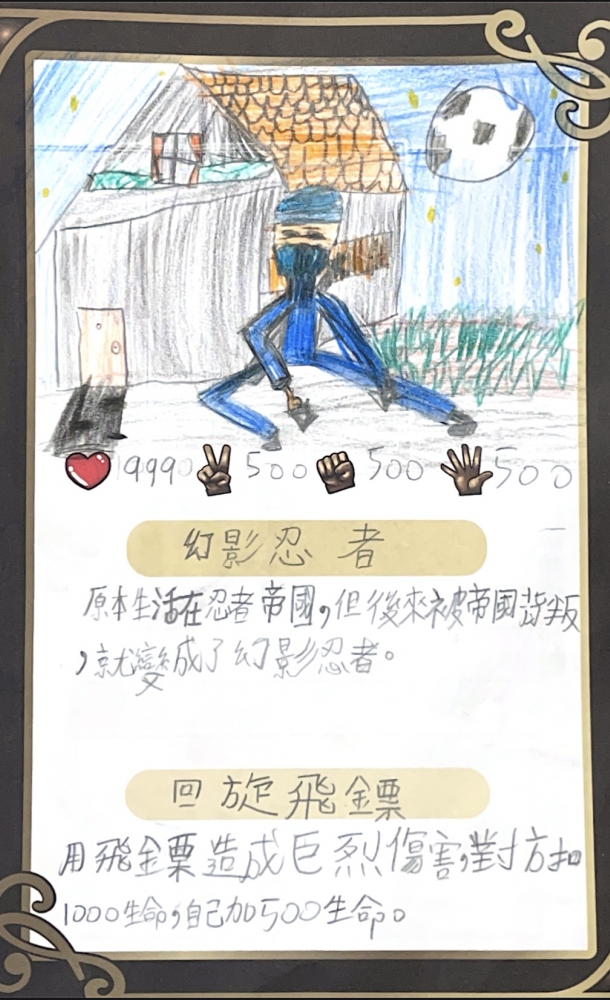 9990 500 500 500
幻影忍者
原本生活在忍者帝國,但後來被帝國背叛
,就變成了幻影忍者。
回旋飛鏢
用飛鏢造成巨烈傷害,對方扣
1000生命,自己加500生命。